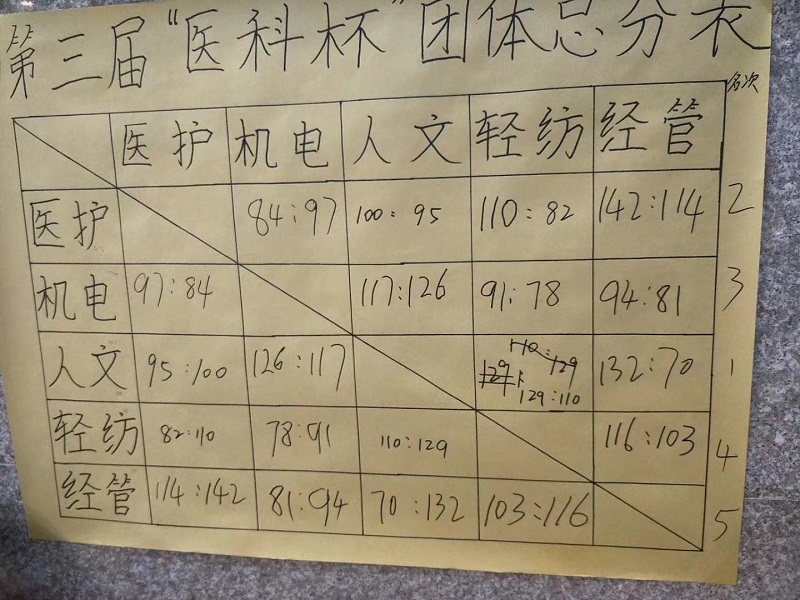 第三届“医科杯”团体总分表
名次
医护 机电 人文 轻纺 经管
医护 84:97 100:95 110:82 142:114 2
机电 97:84 117:126 91:78 94:81 3
人文 95:100 126:117 129:110 132:70 1
轻纺 82:110 78:91 110:129 116:103 4
经管 114:142 81:94 70:132 103:116 5